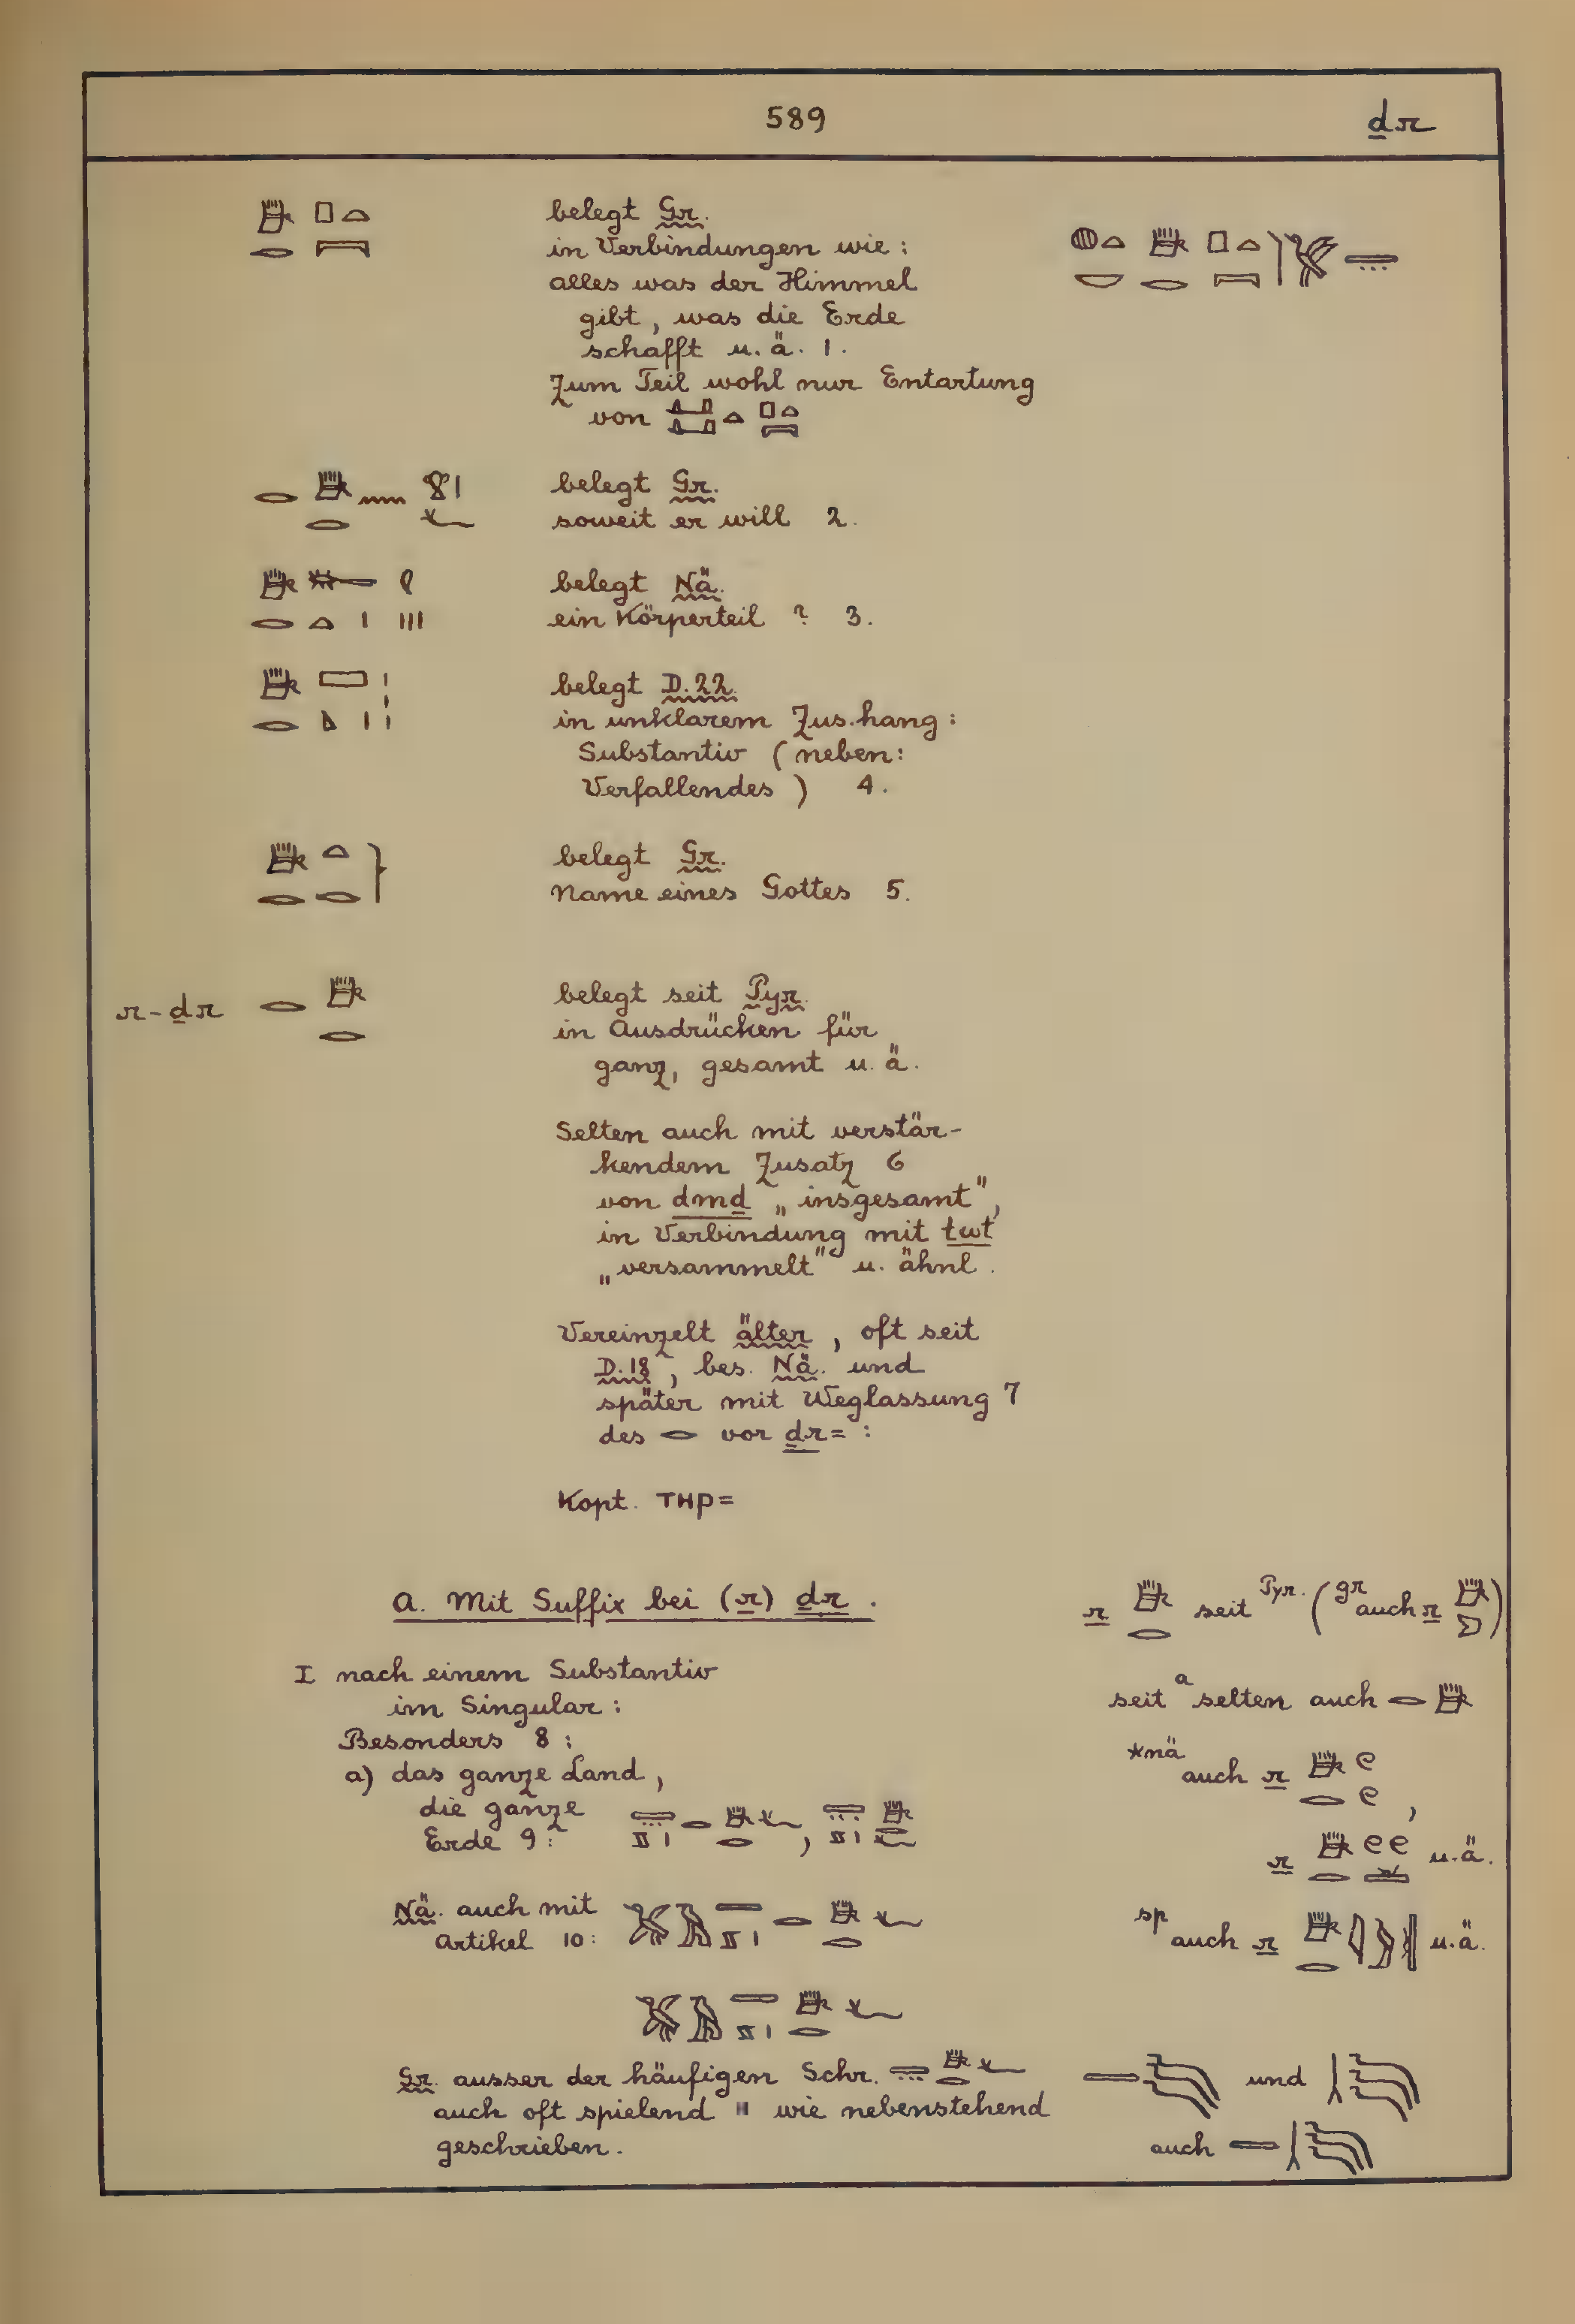 589
ḏr
belegt Gr.
in Verbindungen wie:
alles was der Himmel
gibt, was die Erde
schafft u. ä. 1.
Zum Teil wohl nur Entartung
von
belegt Gr.
soweit er will 2.
belegt Nä.
ein Körperteil ? 3.
belegt D.22.
in unklarem Zus.hang:
Substantiv (neben:
Verfallendes) 4.
belegt Gr.
Name eines Gottes 5.
r-ḏr
belegt seit Pyr.
in Ausdrücken für
ganz, gesamt u. ä.
Selten auch mit verstär-
kendem Zusatz 6
von dmḏ „insgesamt",
in Verbindung mit twt
„versammelt" u. ähnl.
Vereinzelt älter, oft seit
D.18, bes. Nä. und
später mit Weglassung 7
des 𓂋 vor ḏr= :
Kopt. ⲧⲏⲣ=
a. Mit Suffix bei (r) ḏr.
r seit Pyr. (gr auch r )
I nach einem Substantiv
im Singular:
seit a selten auch
Besonders 8:
a) das ganze Land,
die ganze
Erde 9:
*nä auch r ,
r u.ä.
Nä. auch mit
Artikel 10:
sp auch r u.ä.
Gr. ausser der häufigen Schr.
auch oft spielend wie nebenstehend
geschrieben.
und
auch